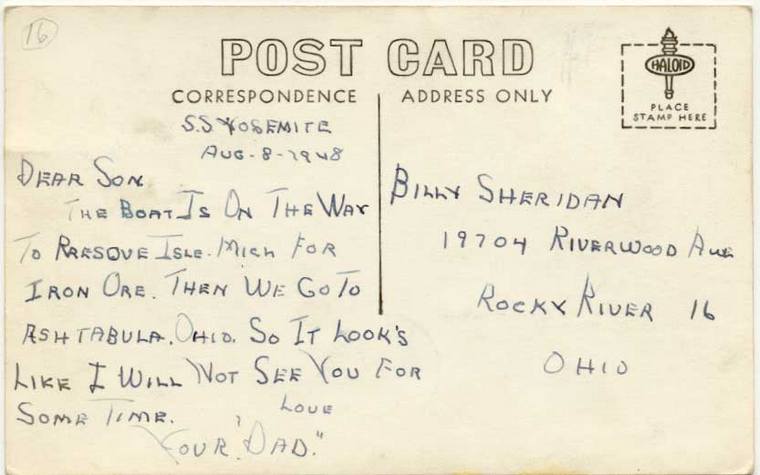 16
POST CARD
CORRESPONDENCE
ADDRESS ONLY
HALOID
PLACE
STAMP HERE
S.S YOSEMITE
AUG-8-1948
DEAR SON
THE BOAT IS ON THE WAY
TO PRESQUE ISLE. MICH FOR
IRON ORE. THEN WE GO TO
ASHTABULA. OHIO. SO IT LOOK'S
LIKE I WILL NOT SEE YOU FOR
SOME TIME.
LOVE
YOUR "DAD."
BILLY SHERIDAN
19704 RIVERWOOD AVE
ROCKY RIVER 16
OHIO